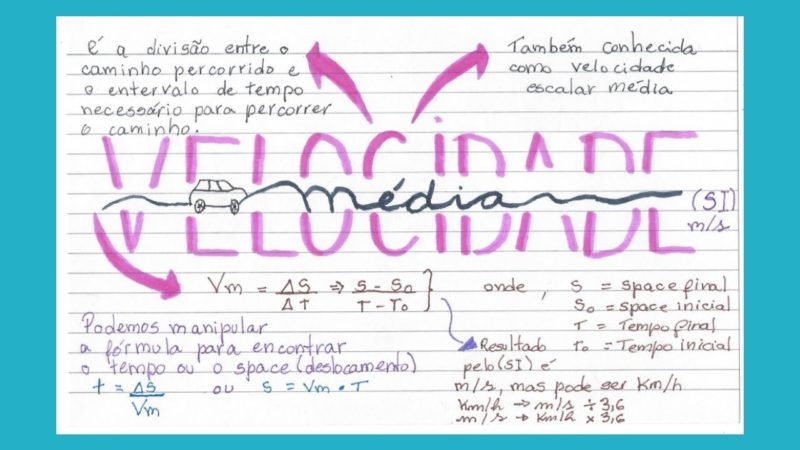 é a divisão entre o
caminho percorrido e
o entervalo de tempo
necessário para percorrer
o caminho.
Também conhecida
como velocidade
escalar média
VELOCIDADE
média
(SI)
m/s
Vm = ΔS/ΔT ⇒ S - S₀/T - T₀ }
onde, S = space final
S₀ = space inicial
T = Tempo final
T₀ = Tempo inicial
Podemos manipular
a fórmula para encontrar
o tempo ou o space (deslocamento)
t = ΔS/Vm ou S = Vm • T
Resultado
pelo (SI) é
m/s, mas pode ser Km/h
Km/h → m/s ÷ 3,6
m/s → Km/h × 3,6